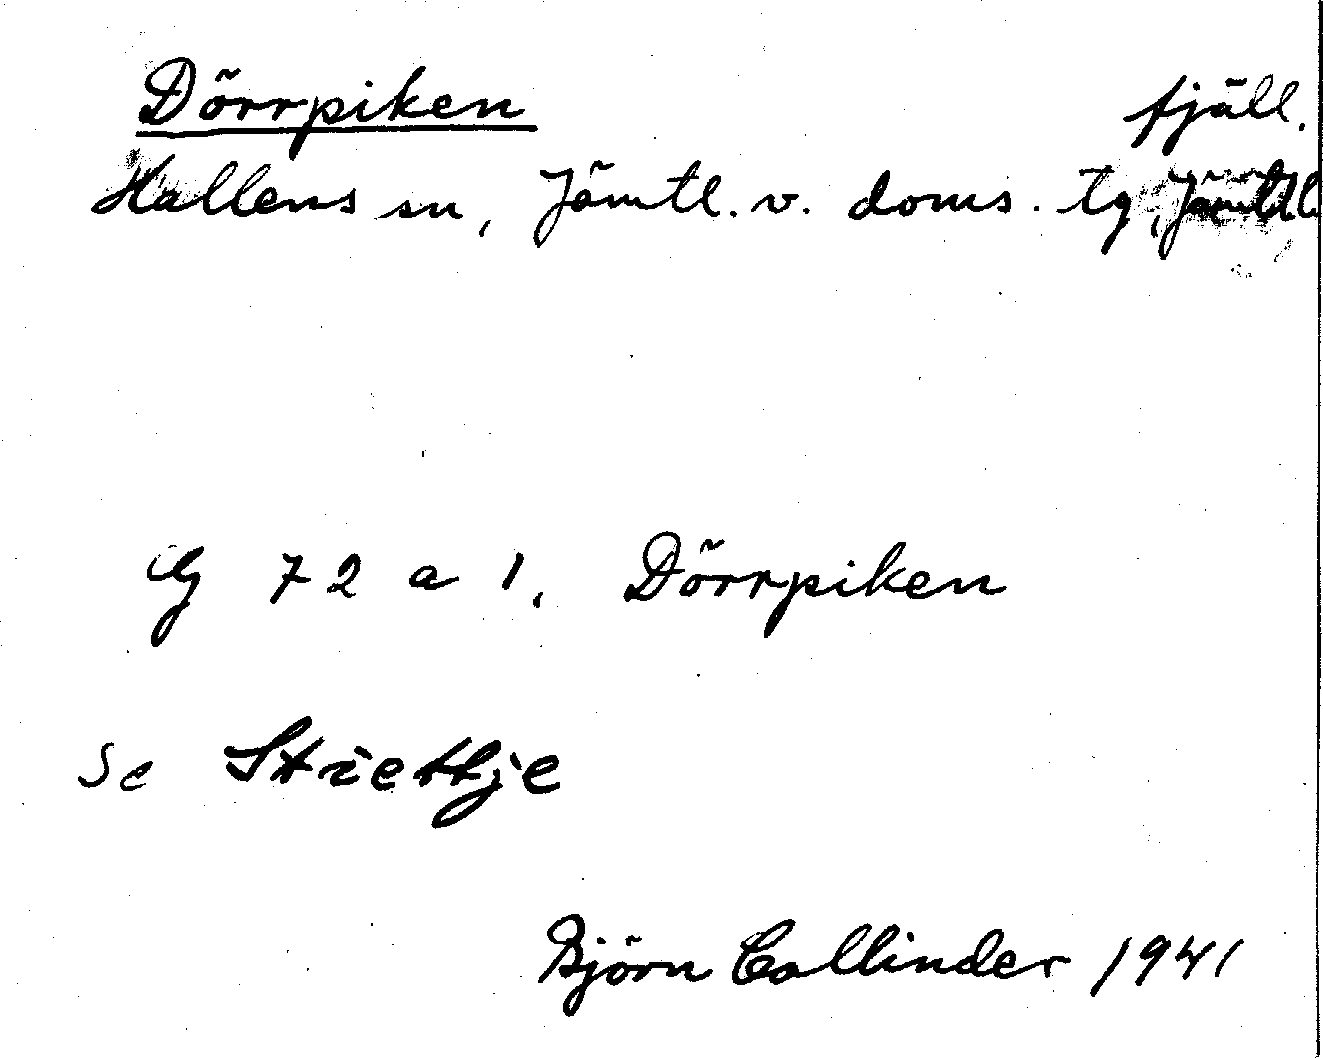 Dörrpiken fjäll.
Hallens sn, Jämtl. v. doms. tg, Jämtl
G 72 a 1. Dörrpiken
Se Striettje
Björn Collinder 1941